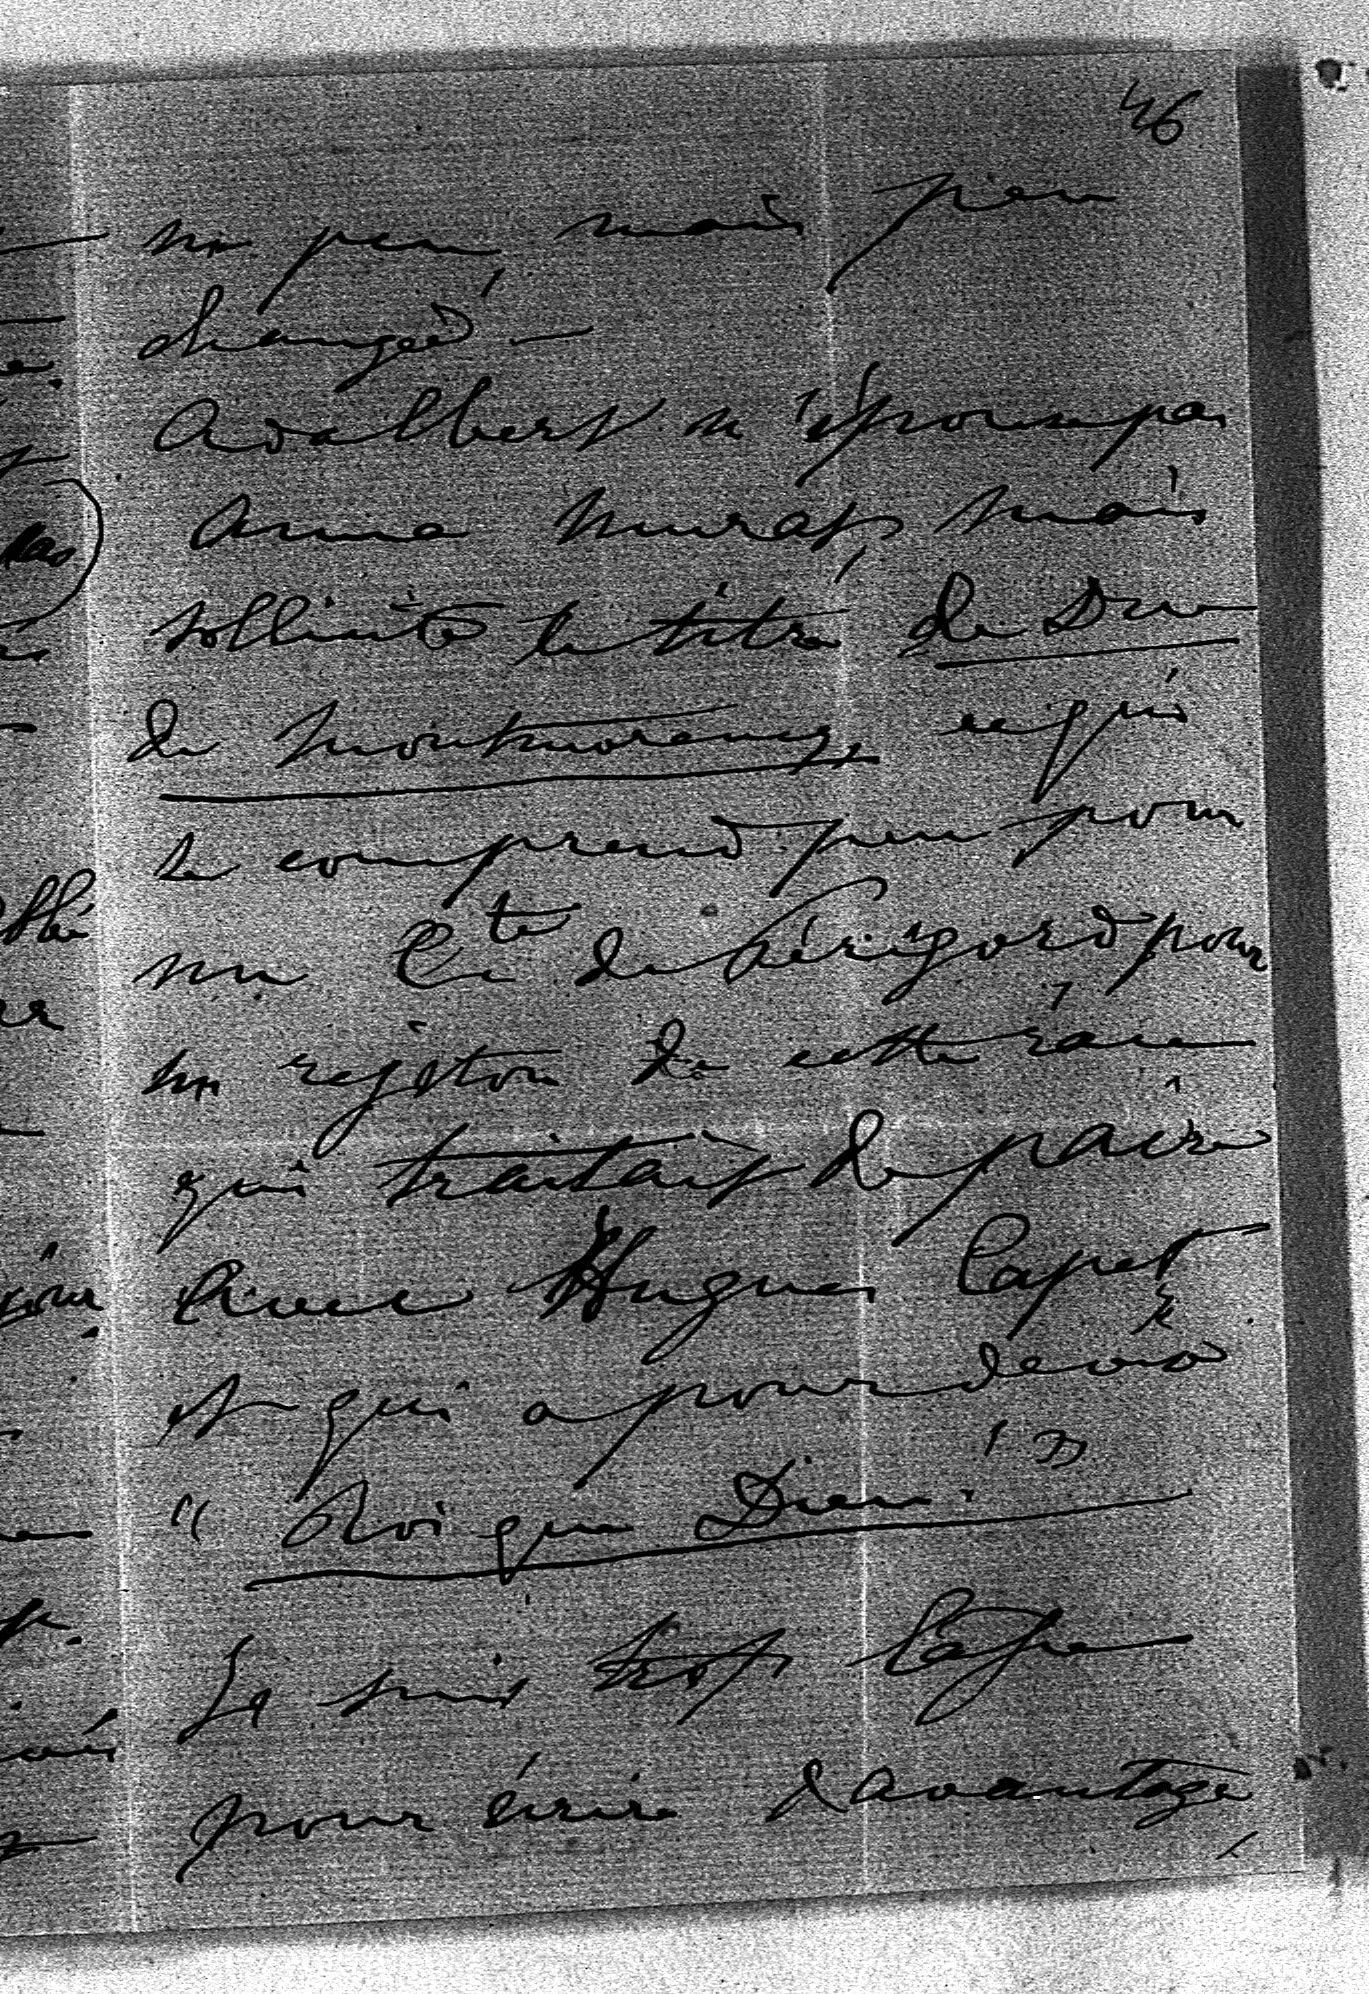 46
un peu, mais peu
changé —
Adalbert n'épouse pas
Anna Murat, mais
sollicite le titre de Duc
de Montmorency, ce qui
se comprend peu pour
un Cte de Périgord, pour
un rejeton de cette race
qui traitait de pair
avec Hugues Capet
et qui a pour devise
" Roi que Dieu! "
Je suis trop
pour écrire davantage